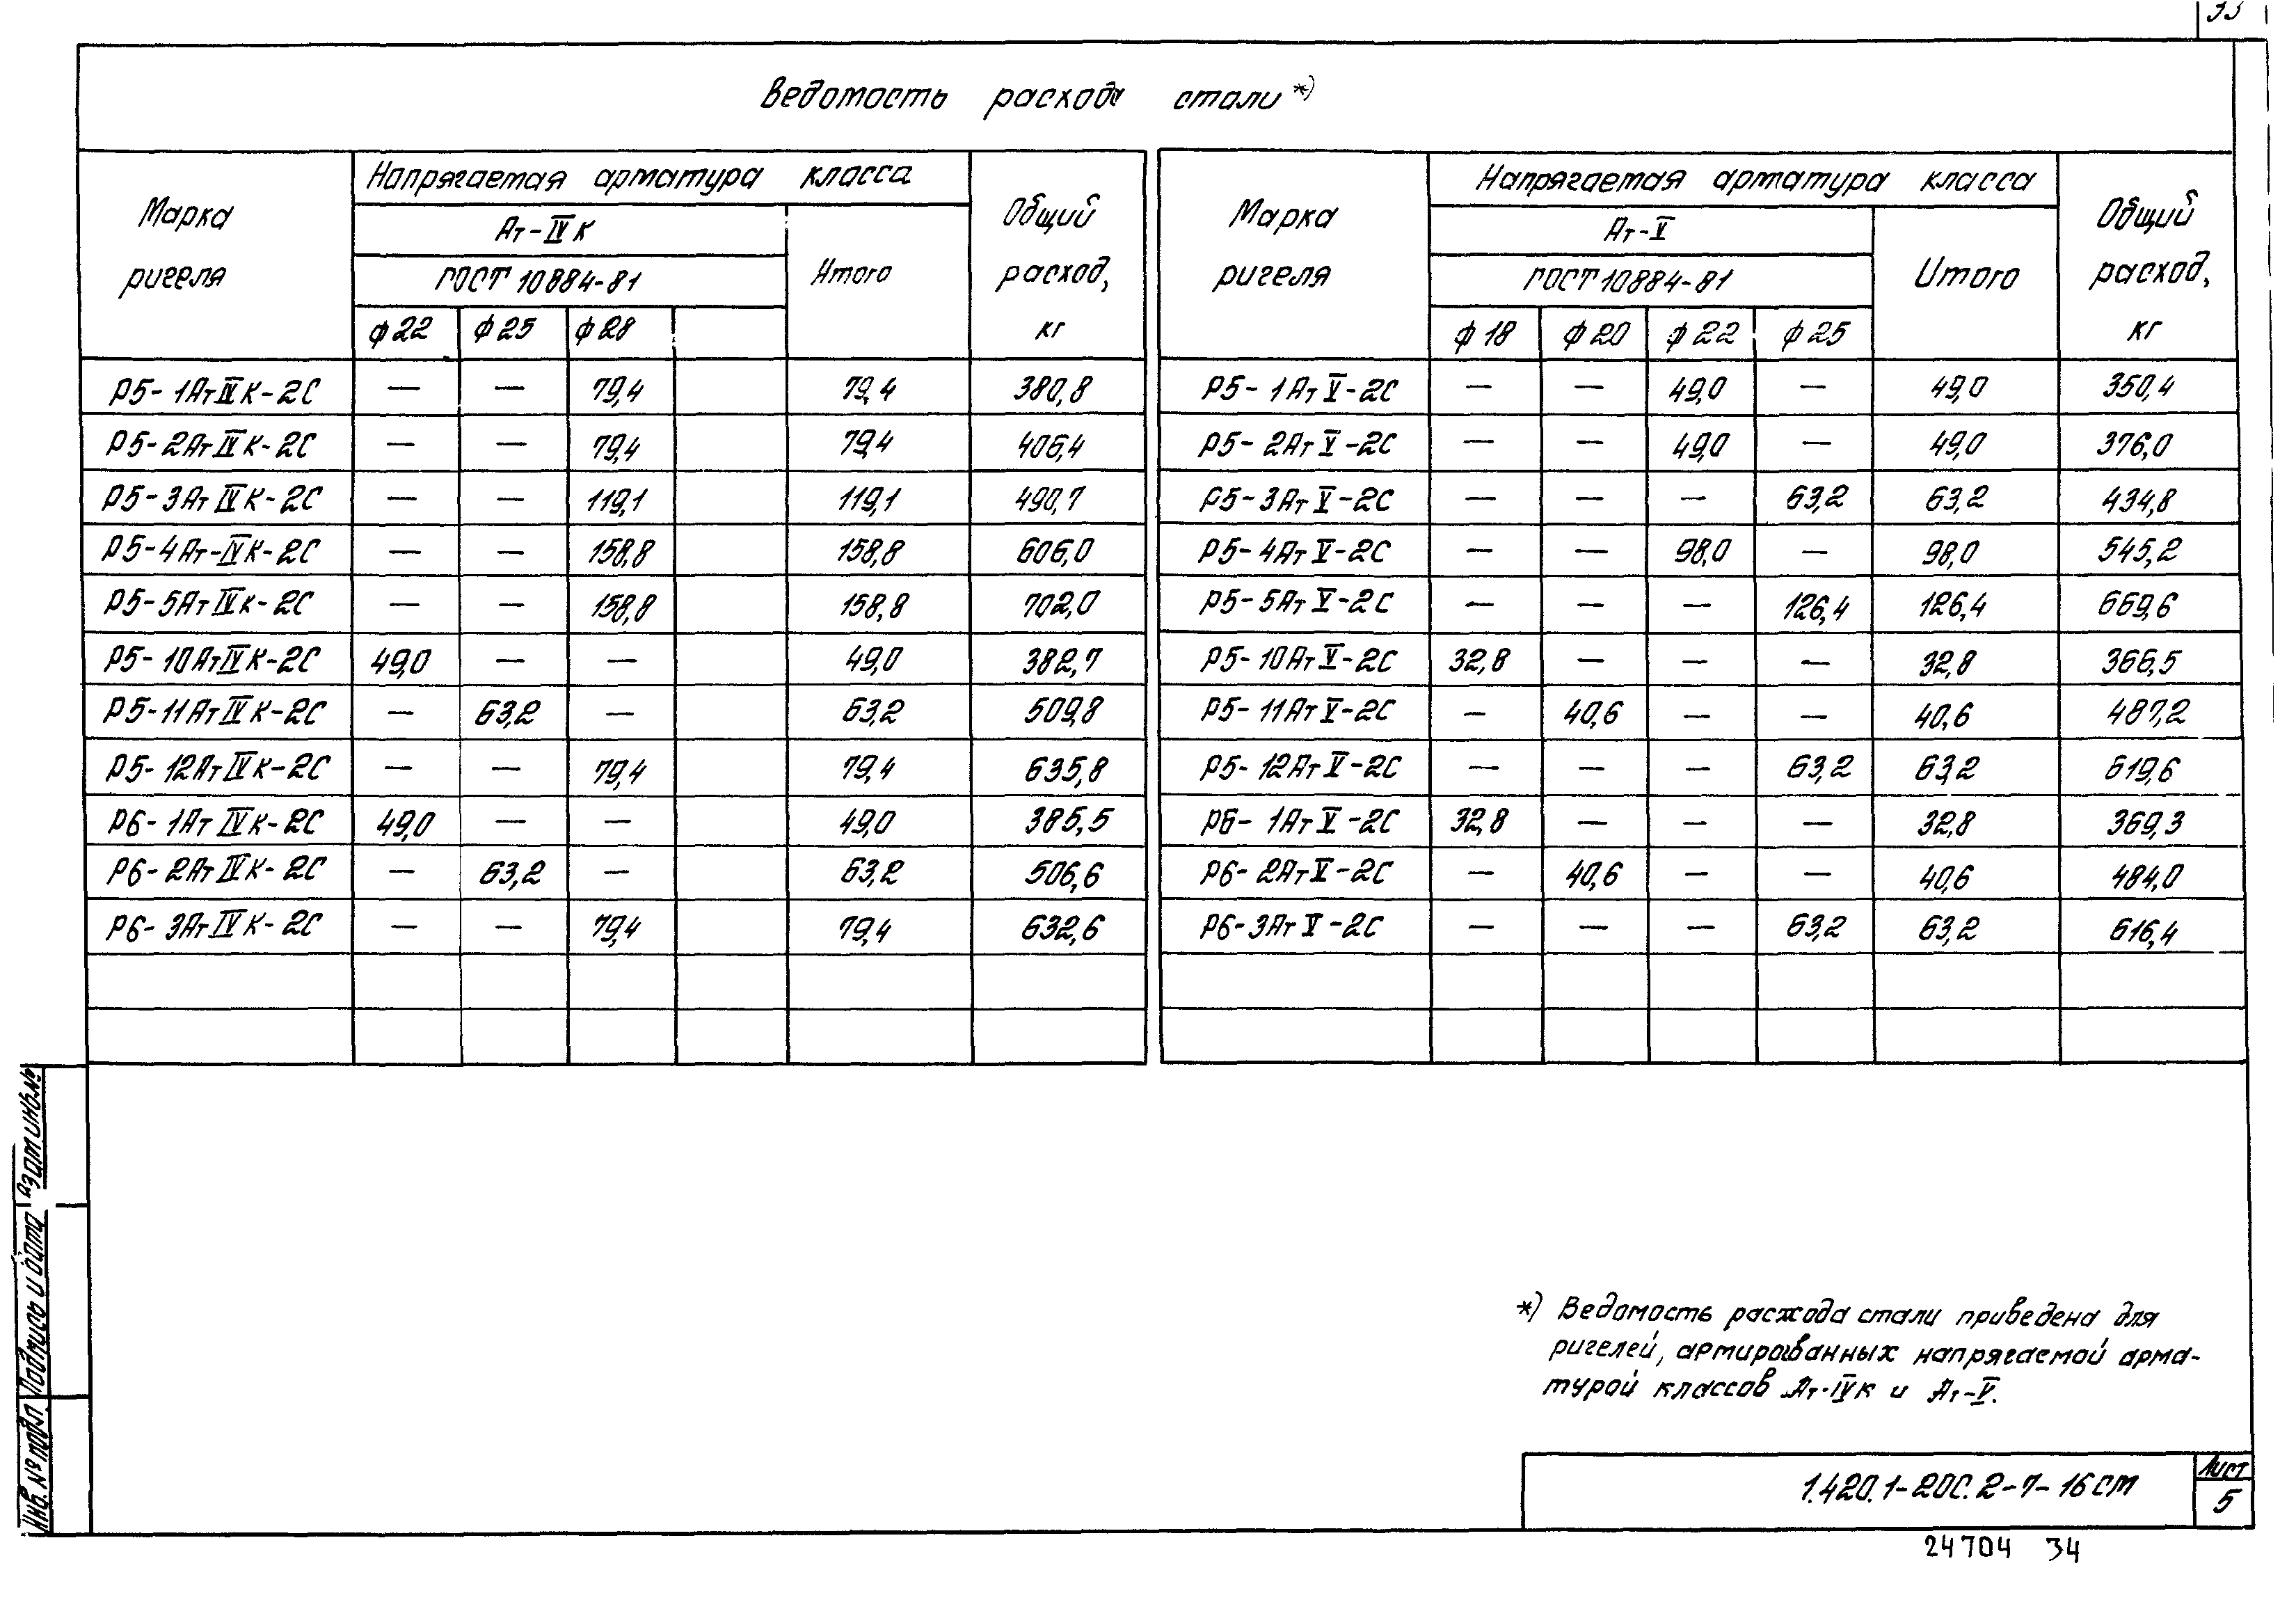 33
Ведомость расхода стали *)
Марка ригеля | Напрягаемая арматура класса | Общий расход, кг
Ат-IVК | Итого
ГОСТ 10884-81
ф22 | ф25 | ф28
Р5-1АтIVК-2С | — | — | 79,4 | 79,4 | 380,8
Р5-2АтIVК-2С | — | — | 79,4 | 79,4 | 406,4
Р5-3АтIVК-2С | — | — | 119,1 | 119,1 | 490,7
Р5-4Ат-IVК-2С | — | — | 158,8 | 158,8 | 606,0
Р5-5АтIVК-2С | — | — | 158,8 | 158,8 | 702,0
Р5-10АтIVК-2С | 49,0 | — | — | 49,0 | 382,7
Р5-11АтIVК-2С | — | 63,2 | — | 63,2 | 509,8
Р5-12АтIVК-2С | — | — | 79,4 | 79,4 | 635,8
Р6-1АтIVК-2С | 49,0 | — | — | 49,0 | 385,5
Р6-2АтIVК-2С | — | 63,2 | — | 63,2 | 506,6
Р6-3АтIVК-2С | — | — | 79,4 | 79,4 | 632,6
Марка ригеля | Напрягаемая арматура класса | Общий расход, кг
Ат-V | Итого
ГОСТ 10884-81
ф18 | ф20 | ф22 | ф25
Р5-1АтV-2С | — | — | 49,0 | — | 49,0 | 350,4
Р5-2АтV-2С | — | — | 49,0 | — | 49,0 | 376,0
Р5-3АтV-2С | — | — | — | 63,2 | 63,2 | 434,8
Р5-4АтV-2С | — | — | 98,0 | — | 98,0 | 545,2
Р5-5АтV-2С | — | — | — | 126,4 | 126,4 | 669,6
Р5-10АтV-2С | 32,8 | — | — | — | 32,8 | 366,5
Р5-11АтV-2С | — | 40,6 | — | — | 40,6 | 487,2
Р5-12АтV-2С | — | — | — | 63,2 | 63,2 | 619,6
Р6-1АтV-2С | 32,8 | — | — | — | 32,8 | 369,3
Р6-2АтV-2С | — | 40,6 | — | — | 40,6 | 484,0
Р6-3АтV-2С | — | — | — | 63,2 | 63,2 | 616,4
*) Ведомость расхода стали приведена для
ригелей, армированных напрягаемой арма-
турой классов Ат-IVК и Ат-V.
Взам инв.№
Подпись и дата
Инв.№ подл.
1.420.1-20С.2-7-16СМ
Лист
5
24704 34